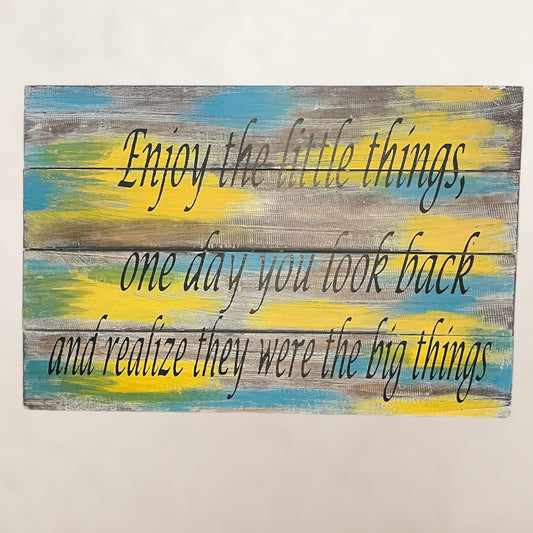 Enjoy the little things,
one day you look back
and realize they were the big things